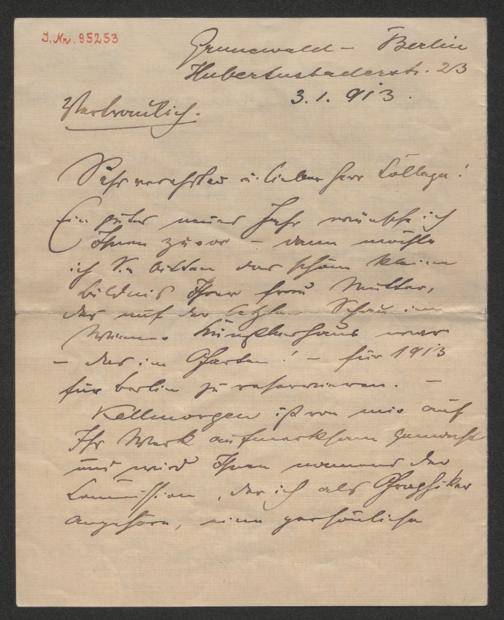 J. Nr. 95253
Grunewald - Berlin
Hubertusbaderstr. 23
3.1.913.
Vertraulich.
Sehr verehrter u. lieber Herr Collega!
Ein gutes neues Jahr wünsche ich
Ihnen zuvor - dann möchte
ich Sie bitten das schöne kleine
Bildnis Ihrer Frau Mutter,
das auf der letzten Schau im
Wiener Künstlerhaus war
- das im Garten! - für 1913
für Berlin zu reservieren. -
Kallmorgen ist von mir auf
Ihr Werk aufmerksam gemacht
und wird Ihnen namens der
Commission, der ich als Graphiker
angehöre, eine persönliche